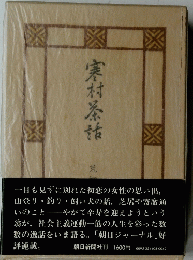 寒村茶話
一目も見ずに別れた初恋の女性の思い出、
山登り・釣り・飼い犬の話、芝居や寄席通
いのこと――やがて卒寿を迎えようという
著が、社会主義運動一筋の人生を彩った数
数の逸話をいま語る。「朝日ジャーナル」好
評連載。
朝日新聞社刊 1600円